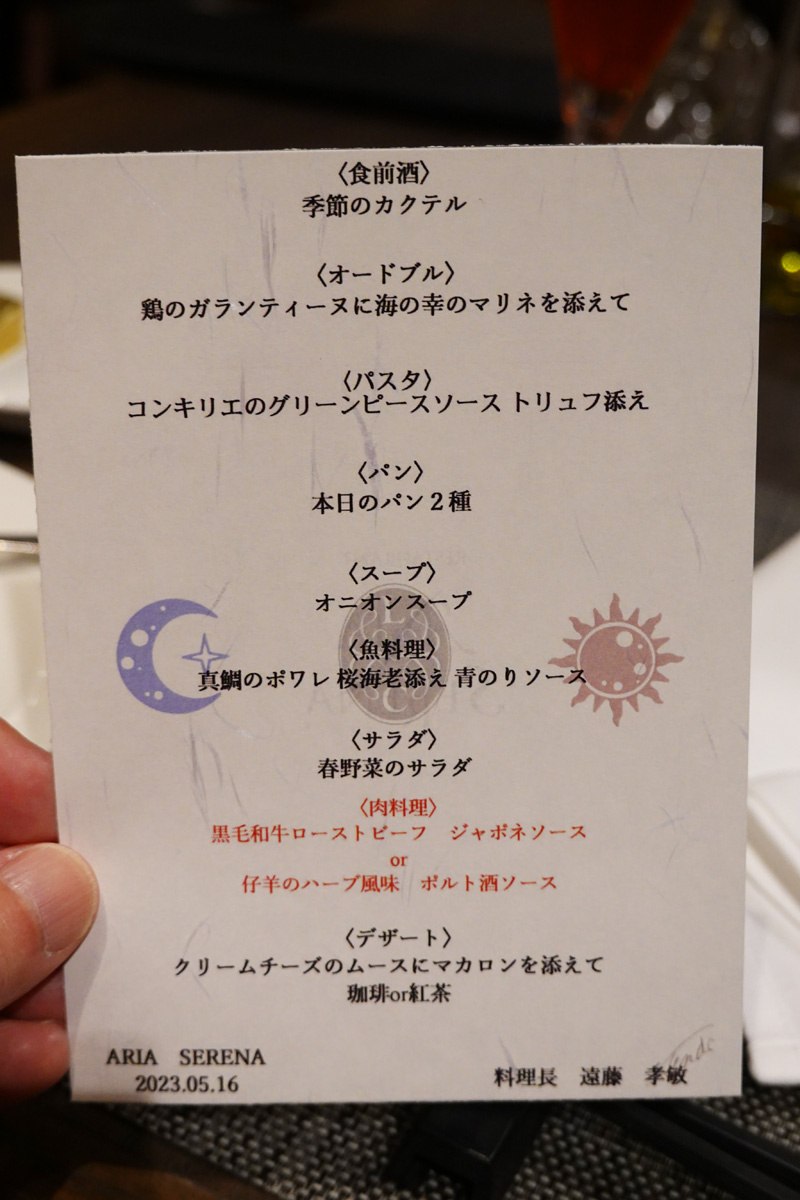 〈食前酒〉
季節のカクテル
〈オードブル〉
鶏のガランティーヌに海の幸のマリネを添えて
〈パスタ〉
コンキリエのグリーンピースソース トリュフ添え
〈パン〉
本日のパン２種
〈スープ〉
オニオンスープ
〈魚料理〉
真鯛のポワレ 桜海老添え 青のりソース
〈サラダ〉
春野菜のサラダ
〈肉料理〉
黒毛和牛ローストビーフ　ジャポネソース
or
仔羊のハーブ風味　ポルト酒ソース
〈デザート〉
クリームチーズのムースにマカロンを添えて
珈琲or紅茶
ARIA　SERENA
2023.05.16
料理長　遠藤　孝敏